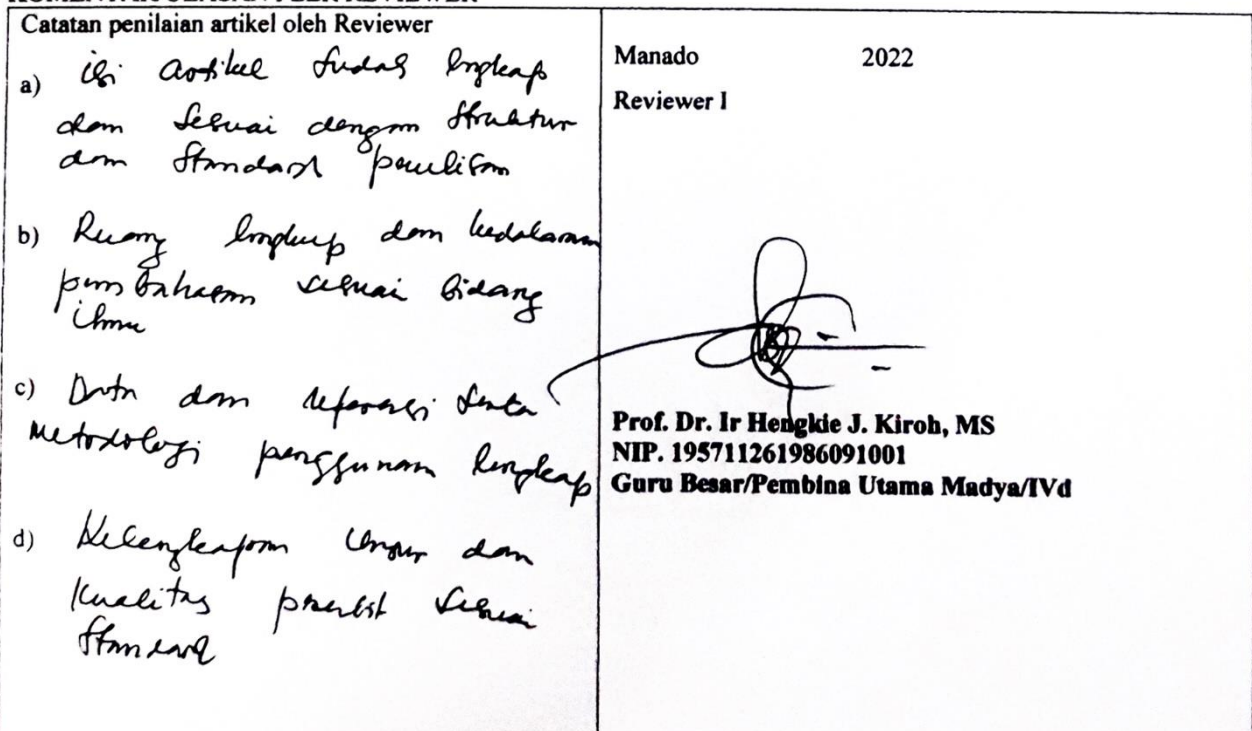 KOMENTAR/ULASAN PEER REVIEWER
Catatan penilaian artikel oleh Reviewer
a) isi artikel sudah lengkap
dan sesuai dengan struktur
dan standard penulisan
b) Ruang lingkup dan kedalaman
pembahasan sesuai bidang
ilmu
c) Data dan referensi serta
metodologi penggunaan lengkap
d) Kelengkapan unsur dan
kualitas penerbit sesuai
standard
Manado 2022
Reviewer I
Prof. Dr. Ir Hengkie J. Kiroh, MS
NIP. 195711261986091001
Guru Besar/Pembina Utama Madya/IVd